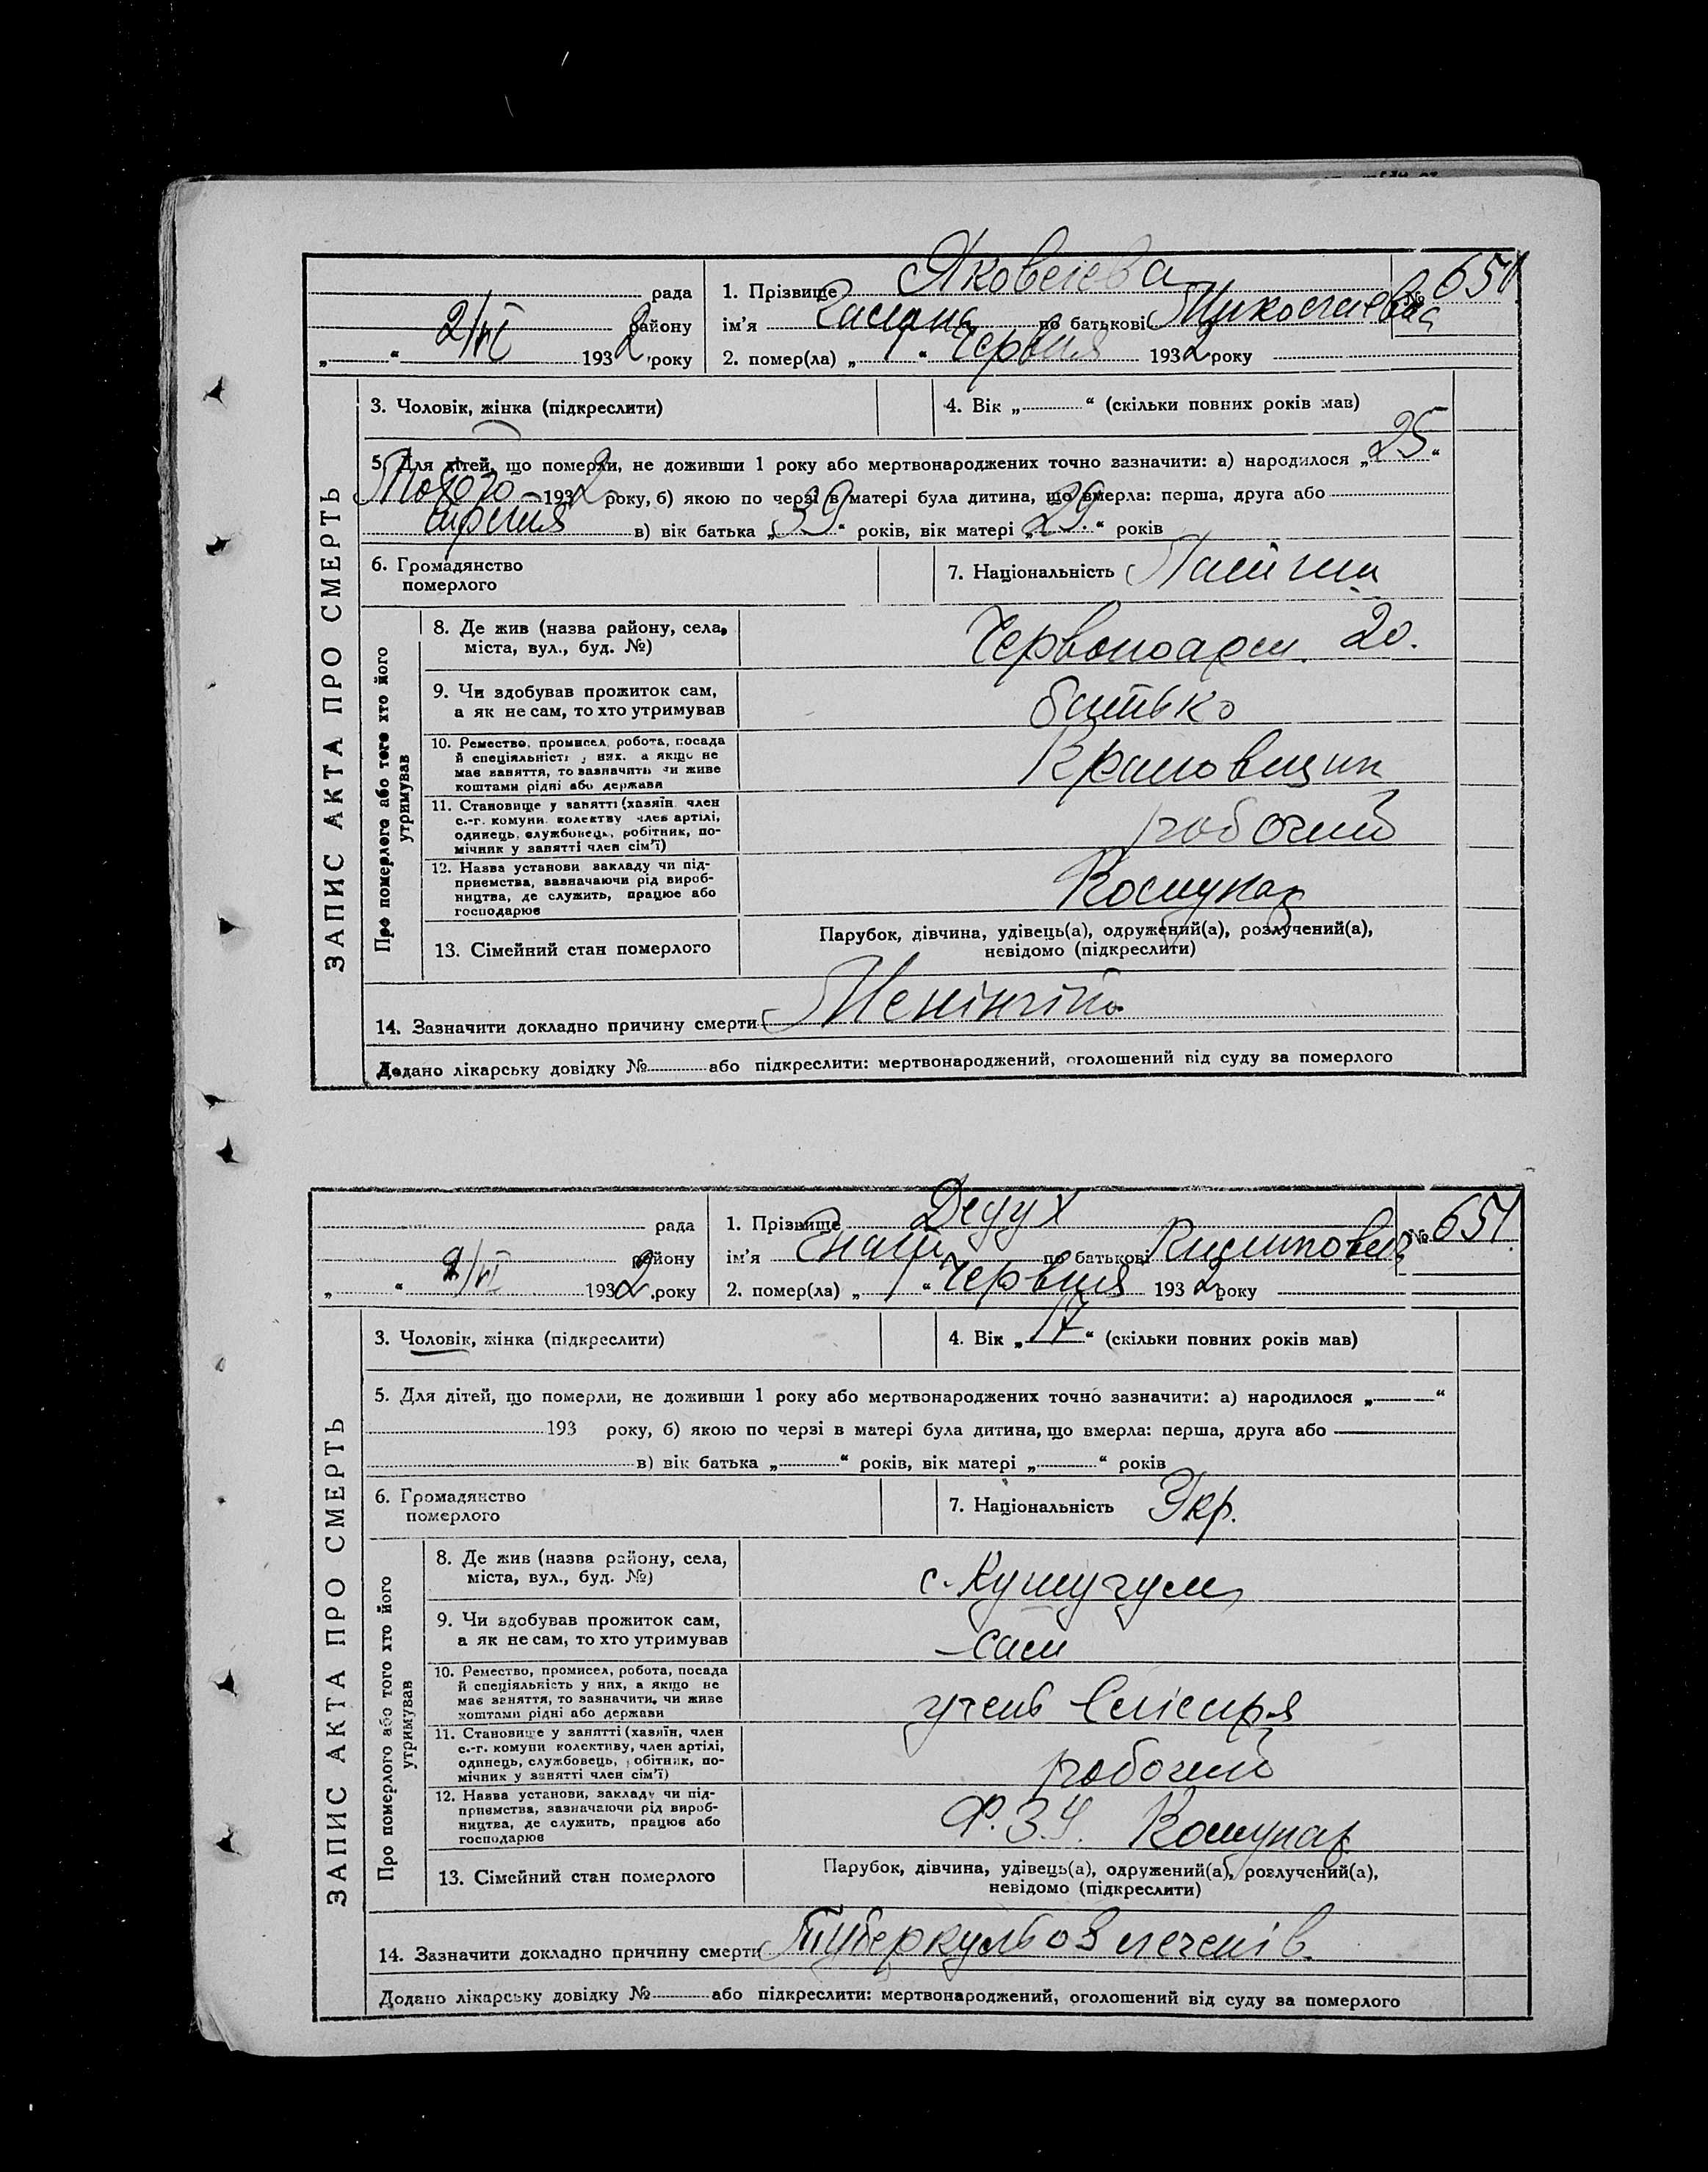 ЗАПИС АКТА ПРО СМЕРТЬ
рада
2/VI району
„ “ 1932 року
1. Прізвище Яковлева
№ 650
ім'я по батькові Миколаевна
2. помер(ла) „ 1 “ Червня 1932 року
3. Чоловік, жінка (підкреслити)
4. Вік „ “ (скільки повних років мав)
5. Для дітей, що померли, не доживши 1 року або мертвонароджених точно зазначити: а) народилося „ 25 “
Лютого 1932 року, б) якою по черзі в матері була дитина, що вмерла: перша, друга або
третя в) вік батька „ 39 “ років, вік матері „ 29 “ років
6. Громадянство померлого
7. Національність
Про померлого або того хто його утримував
8. Де жив (назва району, села, міста, вул., буд. №)
Червоноарм. 20.
9. Чи здобував прожиток сам, а як не сам, то хто утримував
батько
10. Ремество, промисел, робота, посада й спеціяльність у них, а якщо не має заняття, то зазначити чи живе коштами рідні або держави
Крановщик
11. Становище у занятті (хазяїн, член с.-г. комуни, колективу, член артілі, одинець, службовець, робітник, помічник у занятті член сім'ї)
робочий
12. Назва установи, закладу чи підприємства, зазначаючи рід виробництва, де служить, працює або господарює
Комунар
13. Сімейний стан померлого
Парубок, дівчина, удівець(а), одружений(а), розлучений(а), невідомо (підкреслити)
14. Зазначити докладно причину смерти Менінгіт
Додано лікарську довідку № або підкреслити: мертвонароджений, оголошений від суду за померлого
ЗАПИС АКТА ПРО СМЕРТЬ
рада
2/VI району
„ “ 1932 року
1. Прізвище Дедух
№ 651.
ім'я по батькові
2. помер(ла) „ 1 “ Червня 1932 року
3. Чоловік, жінка (підкреслити)
4. Вік „ 17 “ (скільки повних років мав)
5. Для дітей, що померли, не доживши 1 року або мертвонароджених точно зазначити: а) народилося „ “
193 року, б) якою по черзі в матері була дитина, що вмерла: перша, друга або
в) вік батька „ “ років, вік матері „ “ років
6. Громадянство померлого
7. Національність Укр.
Про померлого або того хто його утримував
8. Де жив (назва району, села, міста, вул., буд. №)
с. Кушугум
9. Чи здобував прожиток сам, а як не сам, то хто утримував
сам
10. Ремество, промисел, робота, посада й спеціяльність у них, а якщо не має заняття, то зазначити, чи живе коштами рідні або держави
учень слісиря
11. Становище у занятті (хазяїн, член с.-г. комуни колективу, член артілі, одинець, службовець, робітник, помічник у занятті член сім'ї)
робочий
12. Назва установи, закладу чи підприємства, зазначаючи рід виробництва, де служить, працює або господарює
Ф.З.У. Комунар
13. Сімейний стан померлого
Парубок, дівчина, удівець(а), одружений(а), розлучений(а), невідомо (підкреслити)
14. Зазначити докладно причину смерти Туберкульоз легенів
Додано лікарську довідку № або підкреслити: мертвонароджений, оголошений від суду за померлого